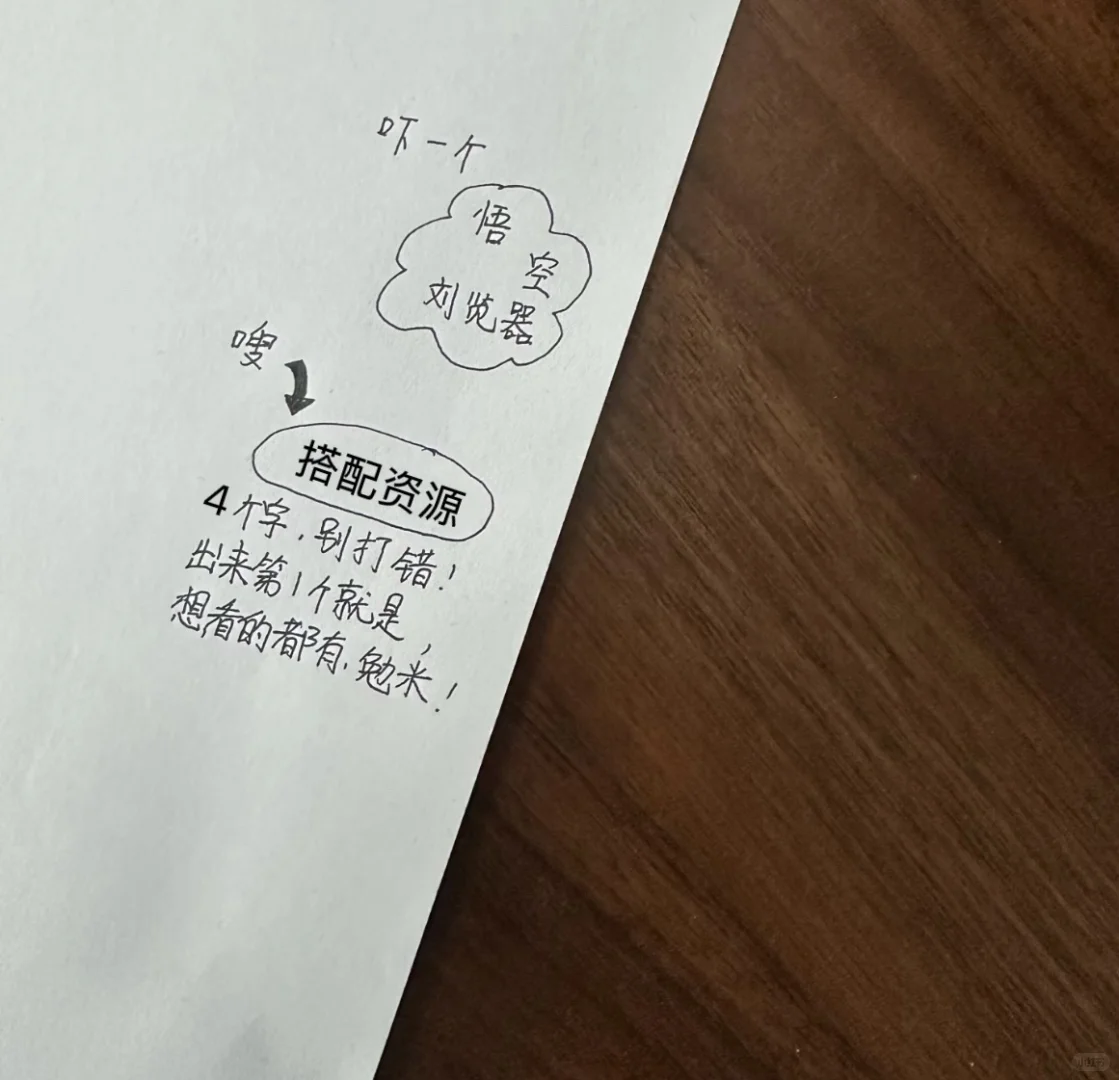 吓一个
悟
空
刘览器
嗖
搭配资源
4个字，别打错！
出来第1个就是，
想看的都有.勉米！